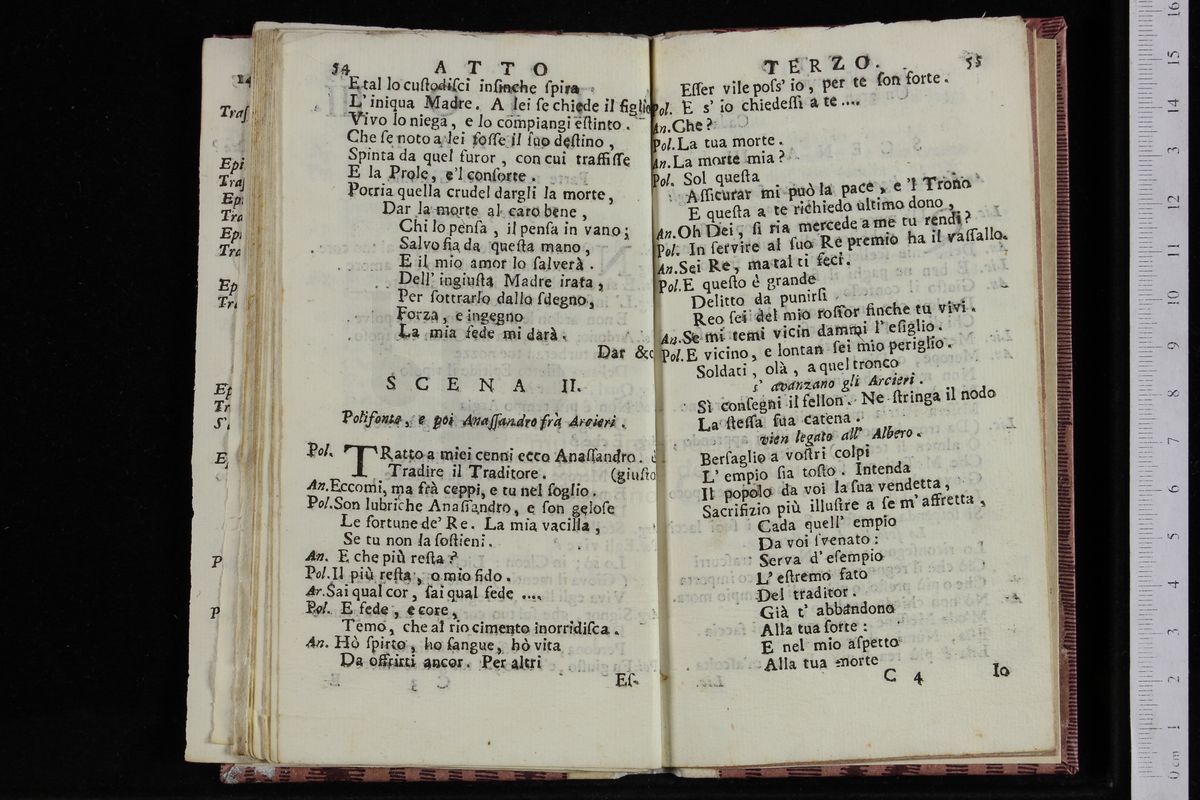 54 ATTO
E tal lo cuſtodiſci inſinche ſpira
L' iniqua Madre. A lei ſe chiede il figlio
Vivo lo niega, e lo compiangi eſtinto.
Che ſe noto a lei foſſe il ſuo deſtino,
Spinta da quel furor, con cui traffiſſe
E la Prole, e'l conſorte.
Potria quella crudel dargli la morte,
Dar la morte al caro bene,
Chi lo penſa, il penſa in vano;
Salvo ſia da queſta mano,
E il mio amor lo ſalverà.
Dell' ingiuſta Madre irata,
Per ſottrarlo dallo ſdegno,
Forza, e ingegno
La mia fede mi darà.
Dar &c
SCENA II.
Polifonte, e poi Anaſſandro frà Arcieri.
Pol. TRatto a miei cenni ecco Anaſſandro.
Tradire il Traditore. (giuſto
An. Eccomi, ma frà ceppi, e tu nel ſoglio.
Pol. Son lubriche Anaſſandro, e ſon geloſe
Le fortune de' Re. La mia vacilla,
Se tu non la ſoſtieni.
An. E che più reſta?
Pol. Il più reſta, o mio fido.
Ar. Sai qual cor, ſai qual fede ....
Pol. E fede, e core,
Temo, che al rio cimento inorridiſca.
An. Hò ſpirto, ho ſangue, hò vita
Da offrirti ancor. Per altri
Eſ-
TERZO. 55
Eſſer vile poſs' io, per te ſon forte.
Pol. E s' io chiedeſſi a te ....
An. Che?
Pol. La tua morte.
An. La morte mia?
Pol. Sol queſta
Aſſicurar mi può la pace, e 'l Trono
E queſta a te richiedo ultimo dono,
An. Oh Dei, ſì ria mercede a me tu rendi?
Pol. In ſervire al ſuo Re premio ha il vaſſallo.
An. Sei Re, ma tal ti feci.
Pol. E queſto è grande
Delitto da punirſi
Reo ſei del mio roſſor finche tu vivi.
An. Se mi temi vicin dammi l' eſiglio.
Pol. E vicino, e lontan ſei mio periglio.
Soldati, olà, a quel tronco
s' avanzano gli Arcieri.
Sì conſegni il fellon. Ne ſtringa il nodo
La ſteſſa ſua catena.
vien legato all' Albero.
Berſaglio a voſtri colpi
L' empio ſia toſto. Intenda
Il popolo da voi la ſua vendetta,
Sacrifizio più illuſtre a ſe m' affretta,
Cada quell' empio
Da voi ſvenato:
Serva d' eſempio
L' eſtremo fato
Del traditor.
Già t' abbandono
Alla tua ſorte:
E nel mio aſpetto
Alla tua morte
C 4 Io